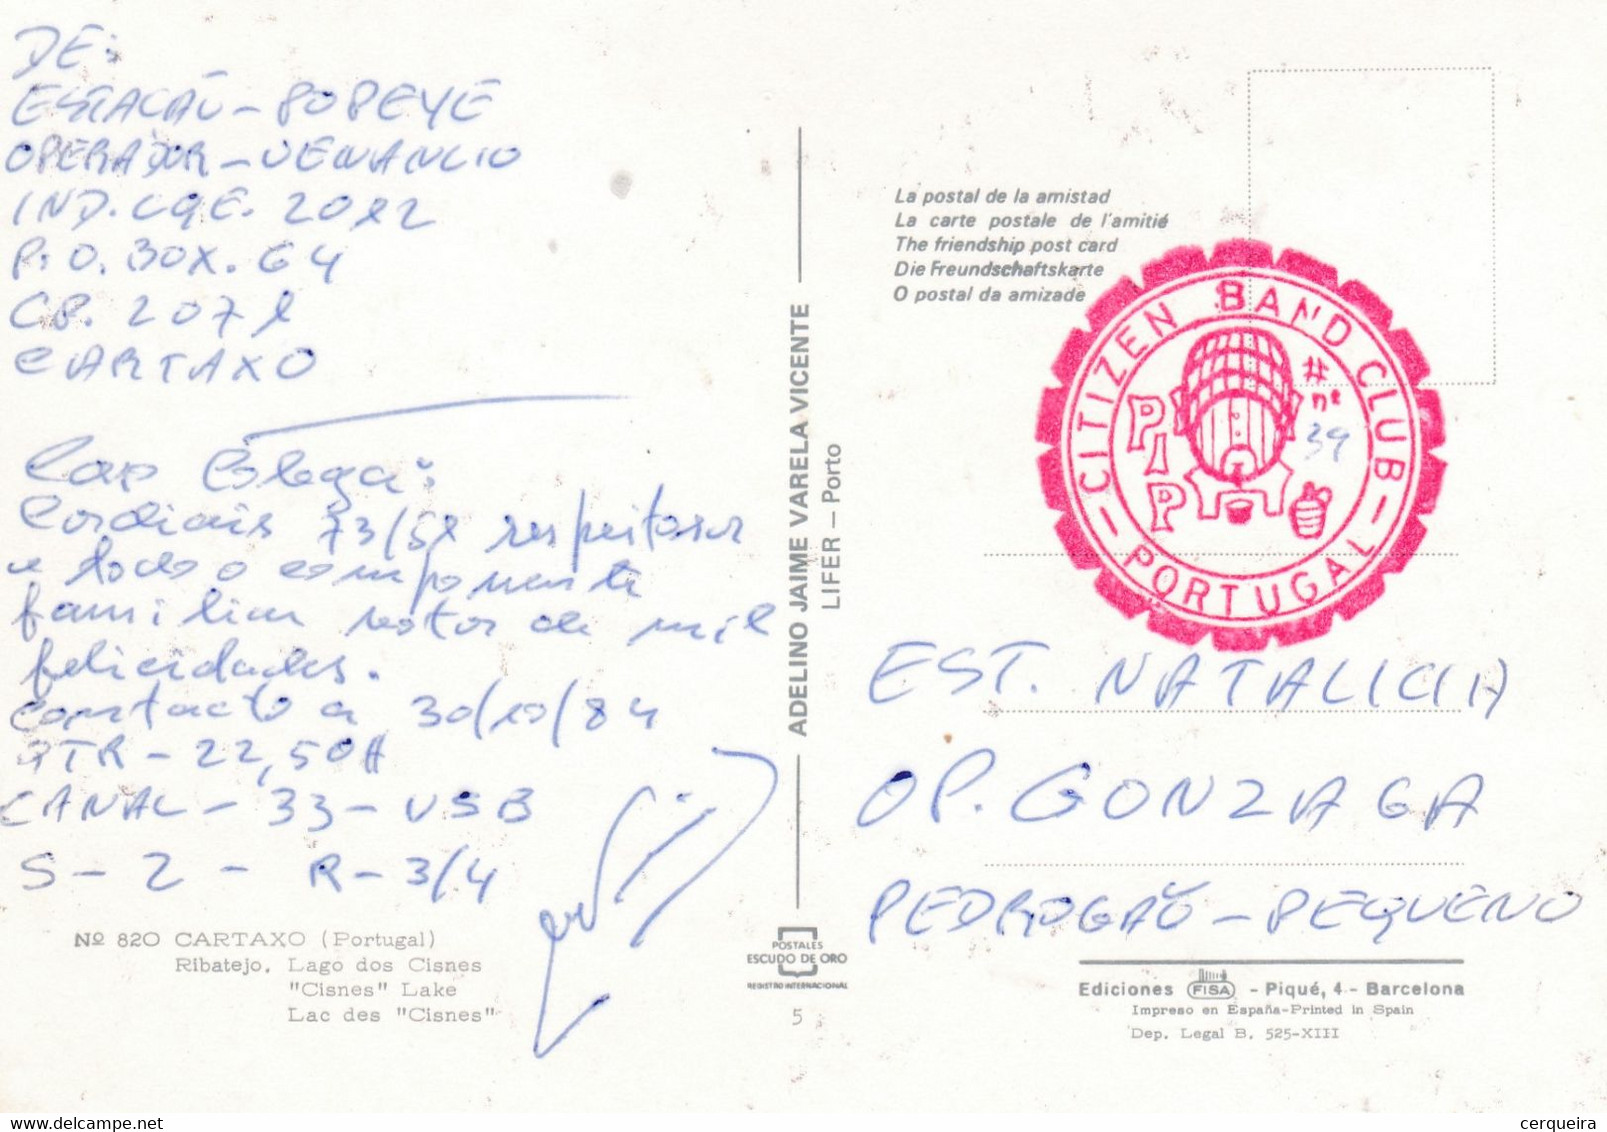 DE:
ESTACAÕ - POPEYE
OPERADOR - VENANCIO
IND. CQE. 2012
P. O. BOX. 64
CP. 2071
CARTAXO
Caro Colega:
Cordiais 73/51 respeitosos
e todo o componente
familiar votos de mil
felicidades.
Contacto a 30/10/84
QTR - 22,50H
CANAL - 33 - USB
S - 2 - R - 3/4
Nº 820 CARTAXO (Portugal)
Ribatejo, Lago dos Cisnes
"Cisnes" Lake
Lac des "Cisnes"
ADELINO JAIME VARELA VICENTE
LIFER – Porto
POSTALES
ESCUDO DE ORO
REGISTRO INTERNACIONAL
5
La postal de la amistad
La carte postale de l'amitié
The friendship post card
Die Freundschaftskarte
O postal da amizade
CITIZEN BAND CLUB
– PORTUGAL –
PIP
# nº
39
EST. NATALICIA
OP. GONZAGA
PEDROGAÕ - PEQUENO
Ediciones FISA - Piqué, 4 - Barcelona
Impreso en España-Printed in Spain
Dep. Legal B. 525-XIII
delcampe.net
cerqueira